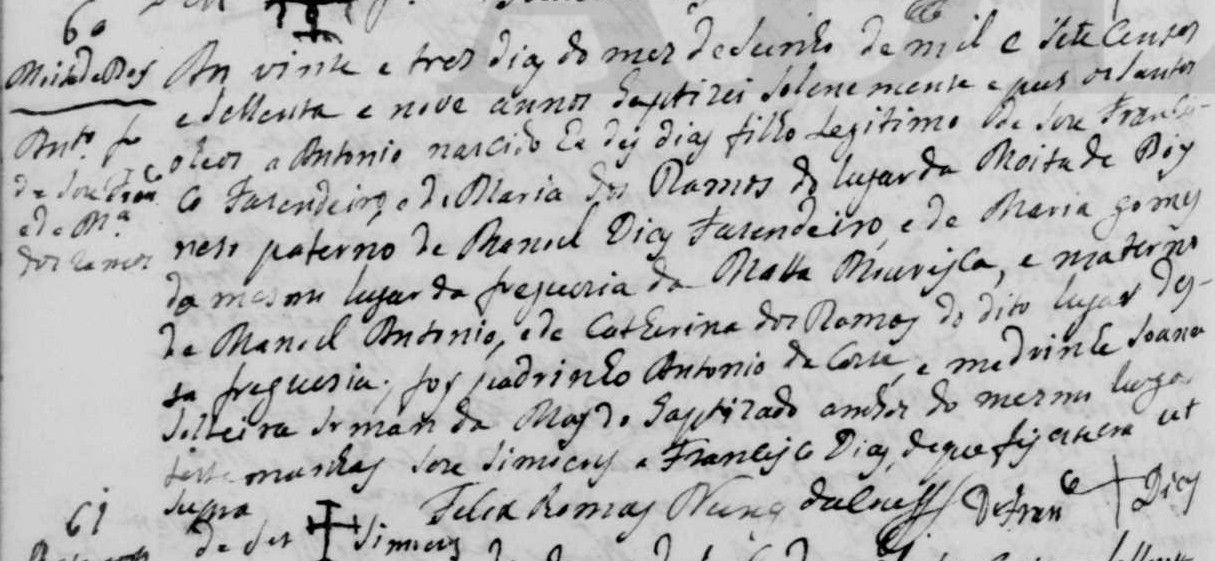 60
Moita de Boy
Ant.o f.o
de Jose Fran.co
e de M.a
dos Ramos
Em vinte e tres dias do mes de Junho de mil e sete Centos
e settenta e nove annos baptizei solenemente e pus os santos
oleos a Antonio nascido ha dez dias filho Legitimo de Jose Francis-
co Fasendeiro, e de Maria dos Ramos do lugar da Moita de Boy
neto paterno de Manoel Dias Fasendeiro, e de Maria gomes
do mesmo lugar da freguesia da Matta Mourisca, e materno
de Manoel Antonio, e de Catherina dos Ramos do dito lugar des-
ta freguesia; foy padrinho Antonio da Costa, e madrinha Joana
solteira Irman da May do baptizado ambos do mesmo lugar
testemunhas Jose Simoens e Francisco Dias, de que fiz este era ut
supra
Felix Nunes
De Fran.co + Dias
61
De Jose + Simoens